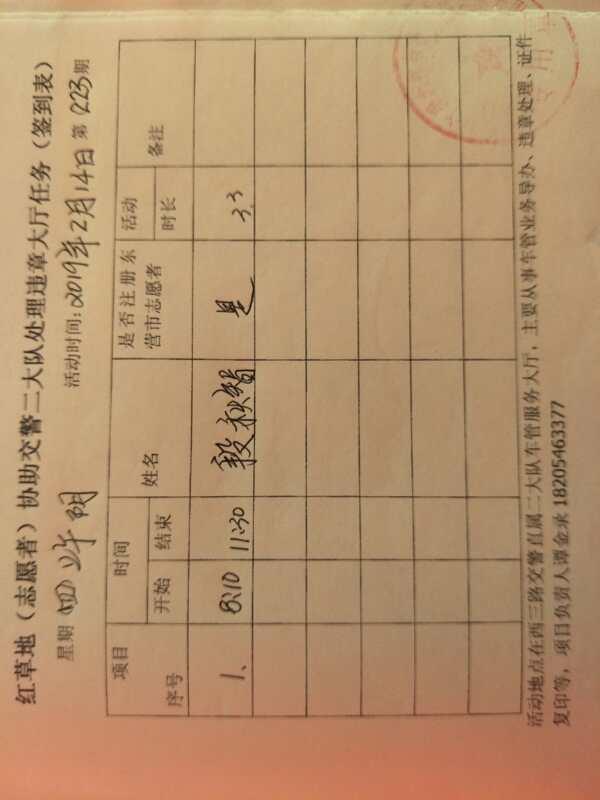 红草地（志愿者）协助交警二大队处理违章大厅任务（签到表）
星期 四 活动时间：2019年2月14日 第 223 期
项目 时间 姓名 是否注册东营市志愿者 活动时长 备注
序号 开始 结束
1、 8:10 11:30 段秋智 是 3.3
活动地点在西三路交警直属二大队车管服务大厅，主要从事车管业务导办、违章处理、证件
复印等，项目负责人谭金承 18205463377